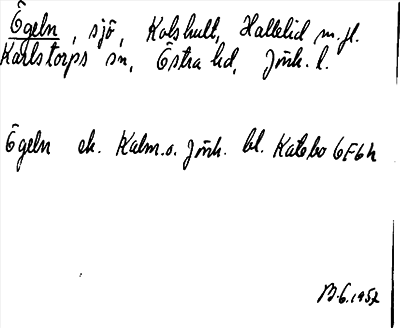 Ögeln, sjö, Kolshult, Hallelid m.fl.
Karlstorps sn, Östra hd, Jönk. l.
Ögeln ek. Kalm.o. Jönk. bl. Katebo 6F6h
B.G.1952